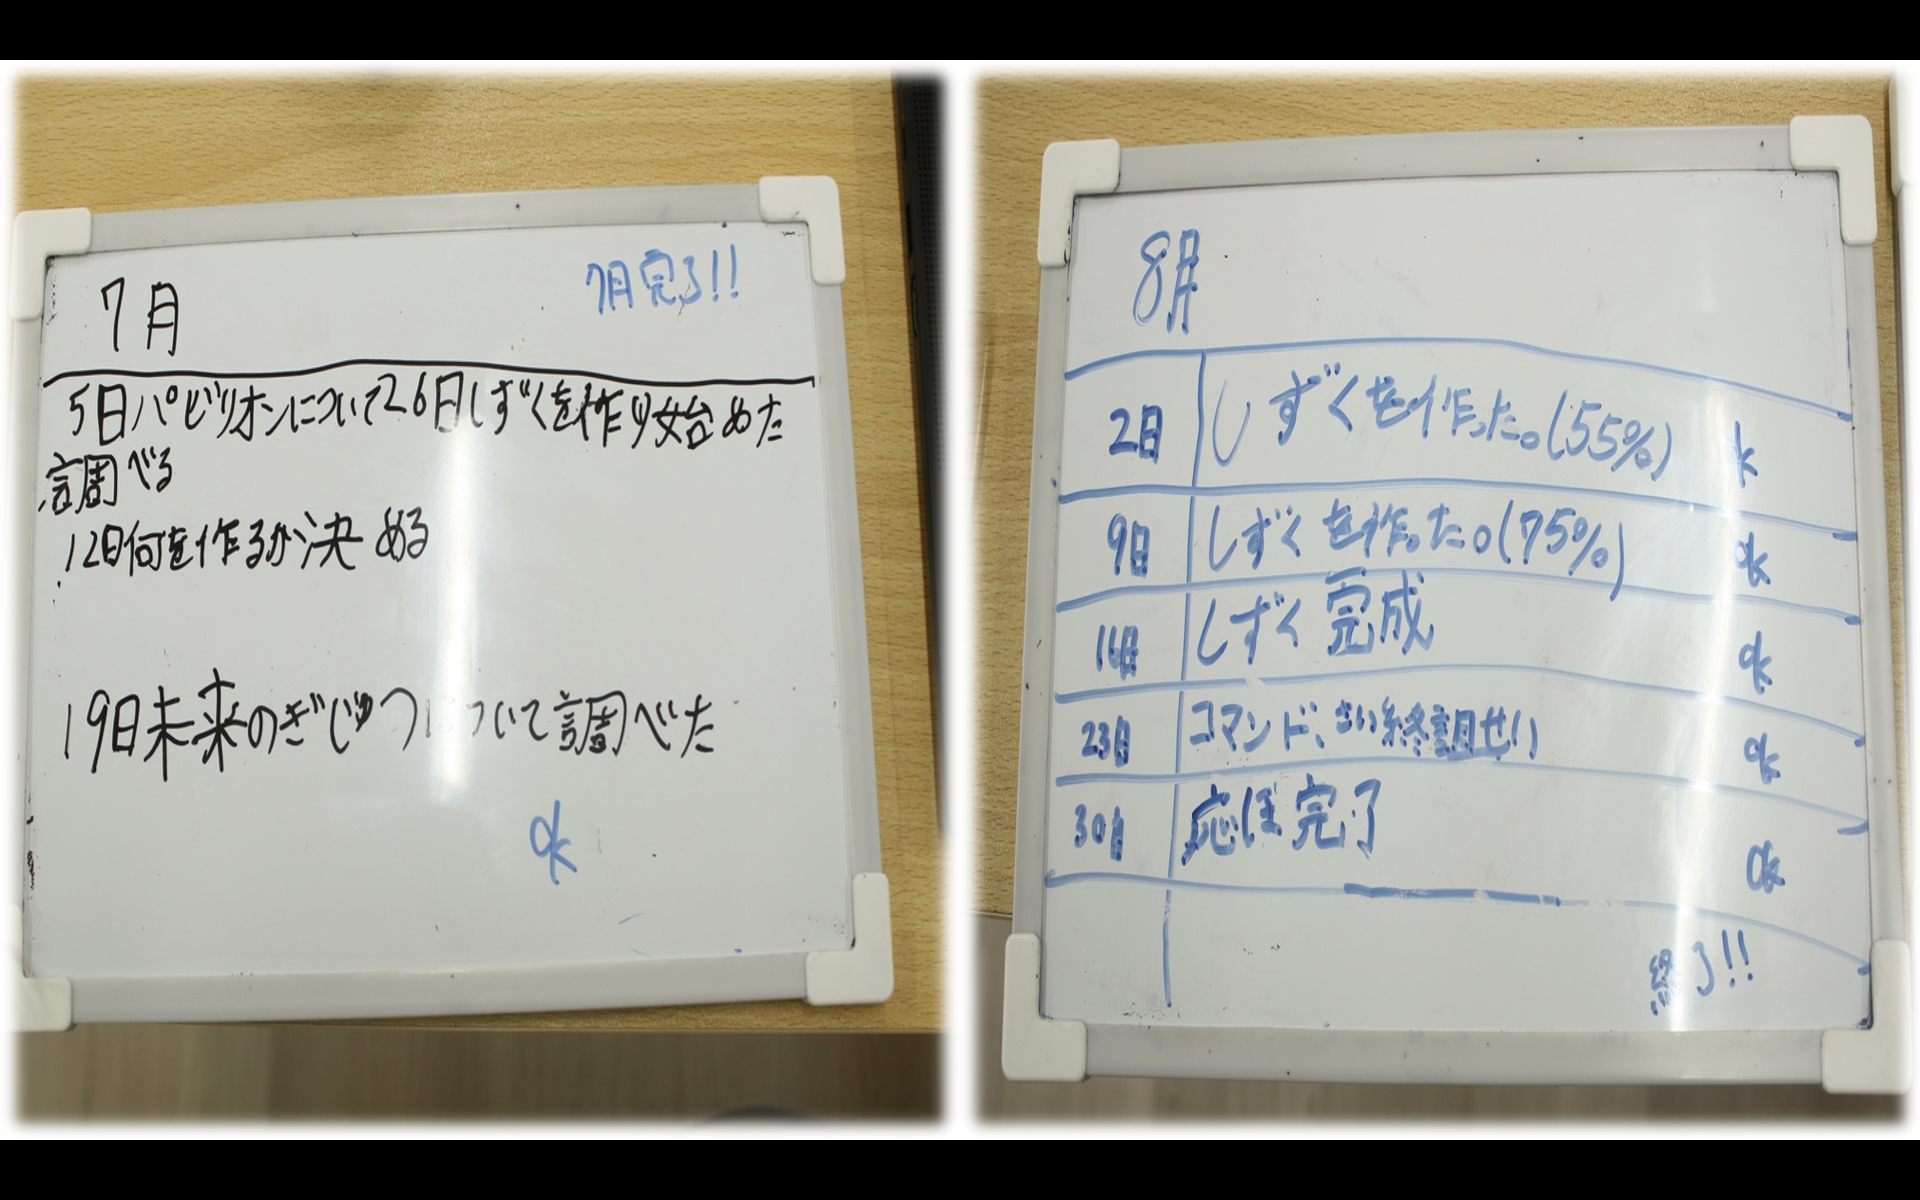 7月
7月完了!!
5日パビリオンについて
調べる
26日しずくを作り始めた
12日何を作るか決める
19日未来のぎじゅつについて調べた
ok
8月
2日 しずくを作った。(55%) ok
9日 しずくを作った。(75%) ok
16日 しずく完成 ok
23日 コマンド、さい終調せい ok
30日 応ぼ完了 ok
終了!!